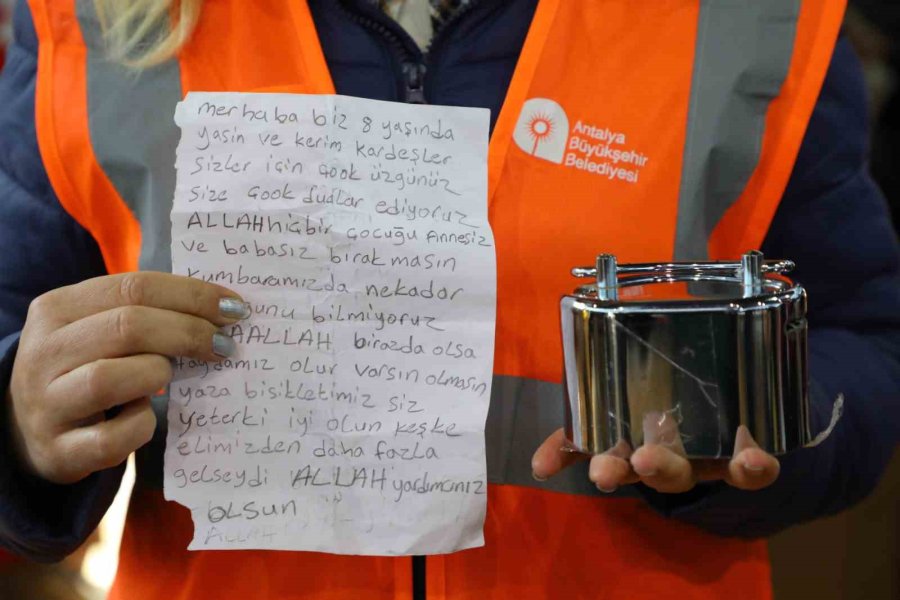 merhaba biz 8 yaşında
yasin ve kerim kardeşler
sizler için Çook üzgünüz
size Çook dualar ediyoruz
ALLAH hiçbir çocuğu Annesiz
ve babasız bırakmasın
kumbaramızda nekadar
bilmiyoruz
ALLAH birazda olsa
faydamız olur varsın olmasın
yaza bisikletimiz siz
yeterki iyi olun keşke
elimizden daha fazla
gelseydi ALLAH yardımcınız
OLSUN
ALLAH
Antalya
Büyükşehir
Belediyesi